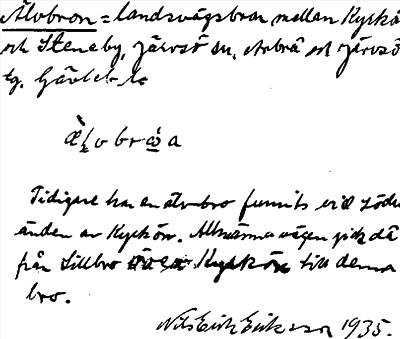 Älvbron = landsvägsbron mellan Kyrkö
och Steneby, Järvsö sn, Arbrå och Järvsö
tg. Gävleb. l.
ælvbrɷ́a
Tidigare har en älvbro funnits vid södra
änden av Kyrkön. Allmänna vägen gick då
från Lillbro över Kyrkön till denna
bro.
Nils Erik Eriksson 1935.